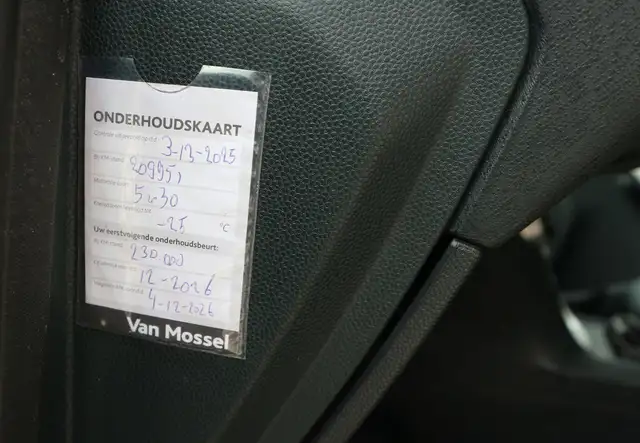 ONDERHOUDSKAART
3-12-2025
209951
5w30
-25 °C
Uw eerstvolgende onderhoudsbeurt:
230.000
12-2026
4-12-2026
Van Mossel